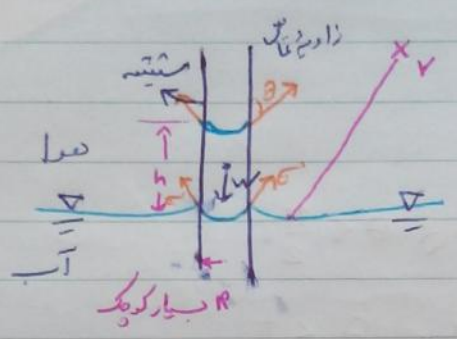 زاویهٔ تماس
شیشه
θ
x
γ
هوا
h
W
σ
σ
آب
R بسیار کوچک